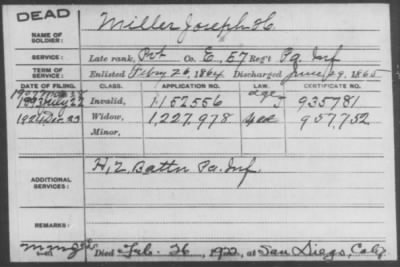 DEAD
NAME OF SOLDIER: Miller Joseph H.
SERVICE: Late rank, Pvt Co. E, 57 Reg't Pa. Inf
TERM OF SERVICE: Enlisted Feby 26, 1864, Discharged June 29, 1865
DATE OF FILING. CLASS. APPLICATION NO. LAW. CERTIFICATE NO.
Invalid, 1152556 935781
Widow, 1,227,978 957,752
Minor,
ADDITIONAL SERVICES: H, 2 Battn Pa. Inf.
REMARKS:
Died Feb. 26, 1922, at San Diego, Calif